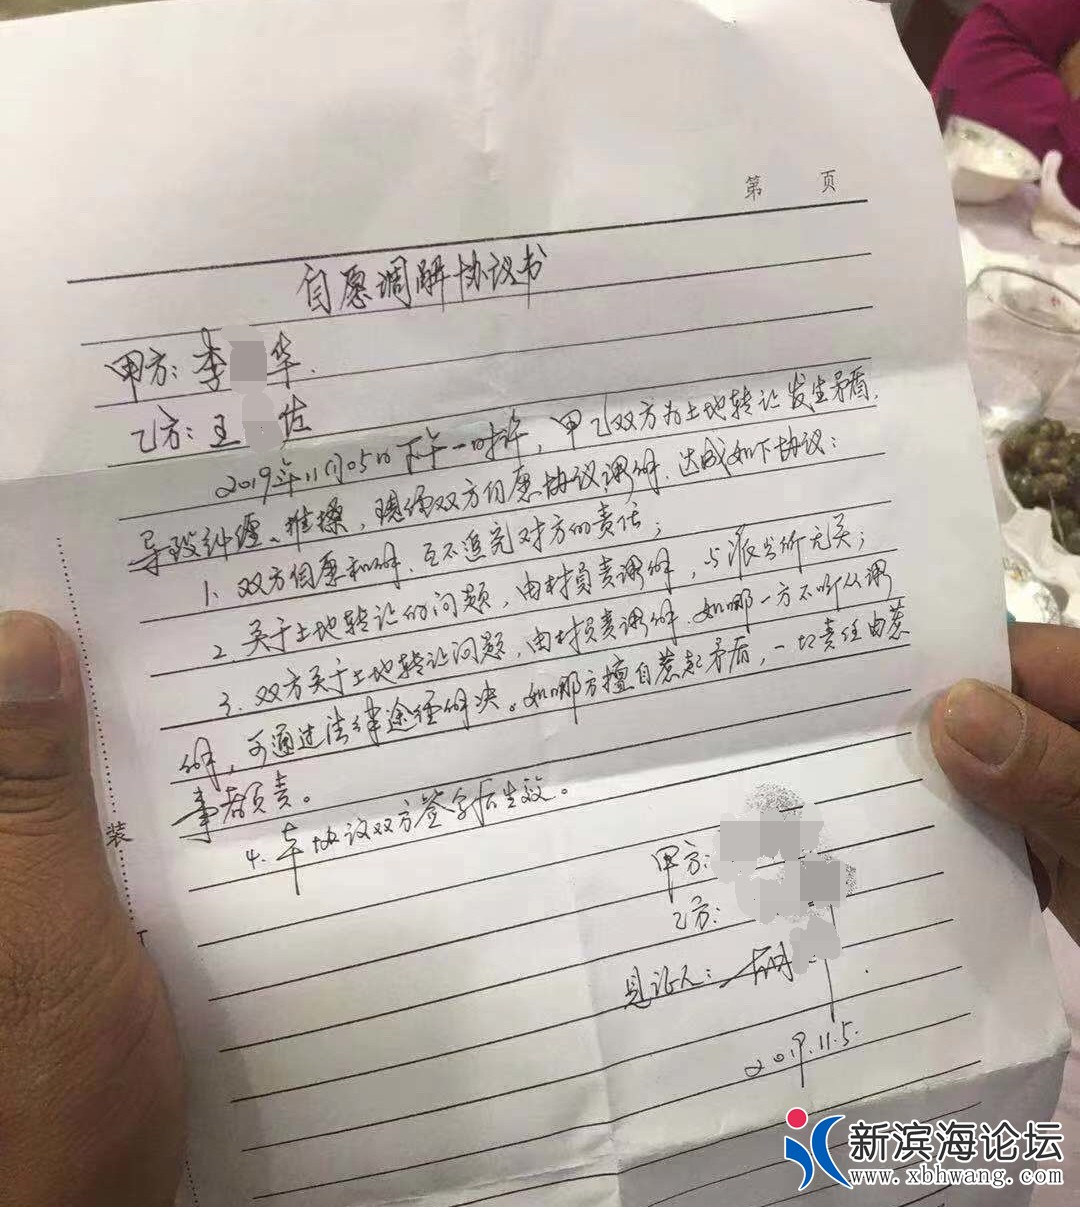 第 页
自愿调解协议书
甲方：李 华.
乙方：王 佐
2019年11月05日下午一时许，甲乙双方为土地转让发生矛盾.
导致纠缠、推搡，现经双方自愿协议调解.达成如下协议：
1. 双方自愿和解.互不追究对方的责任；
2. 关于土地转让的问题，由村负责调解，与派出所无关；
3. 双方关于土地转让问题，由村负责调解.如哪一方不听从调
解，可通过法律途径解决。如哪方擅自惹起矛盾，一切责任由惹
事者负责。
4. 本协议双方签字后生效。
甲方：
乙方：
见证人：
2019.11.5.
装
新滨海论坛
www.xbhwang.com